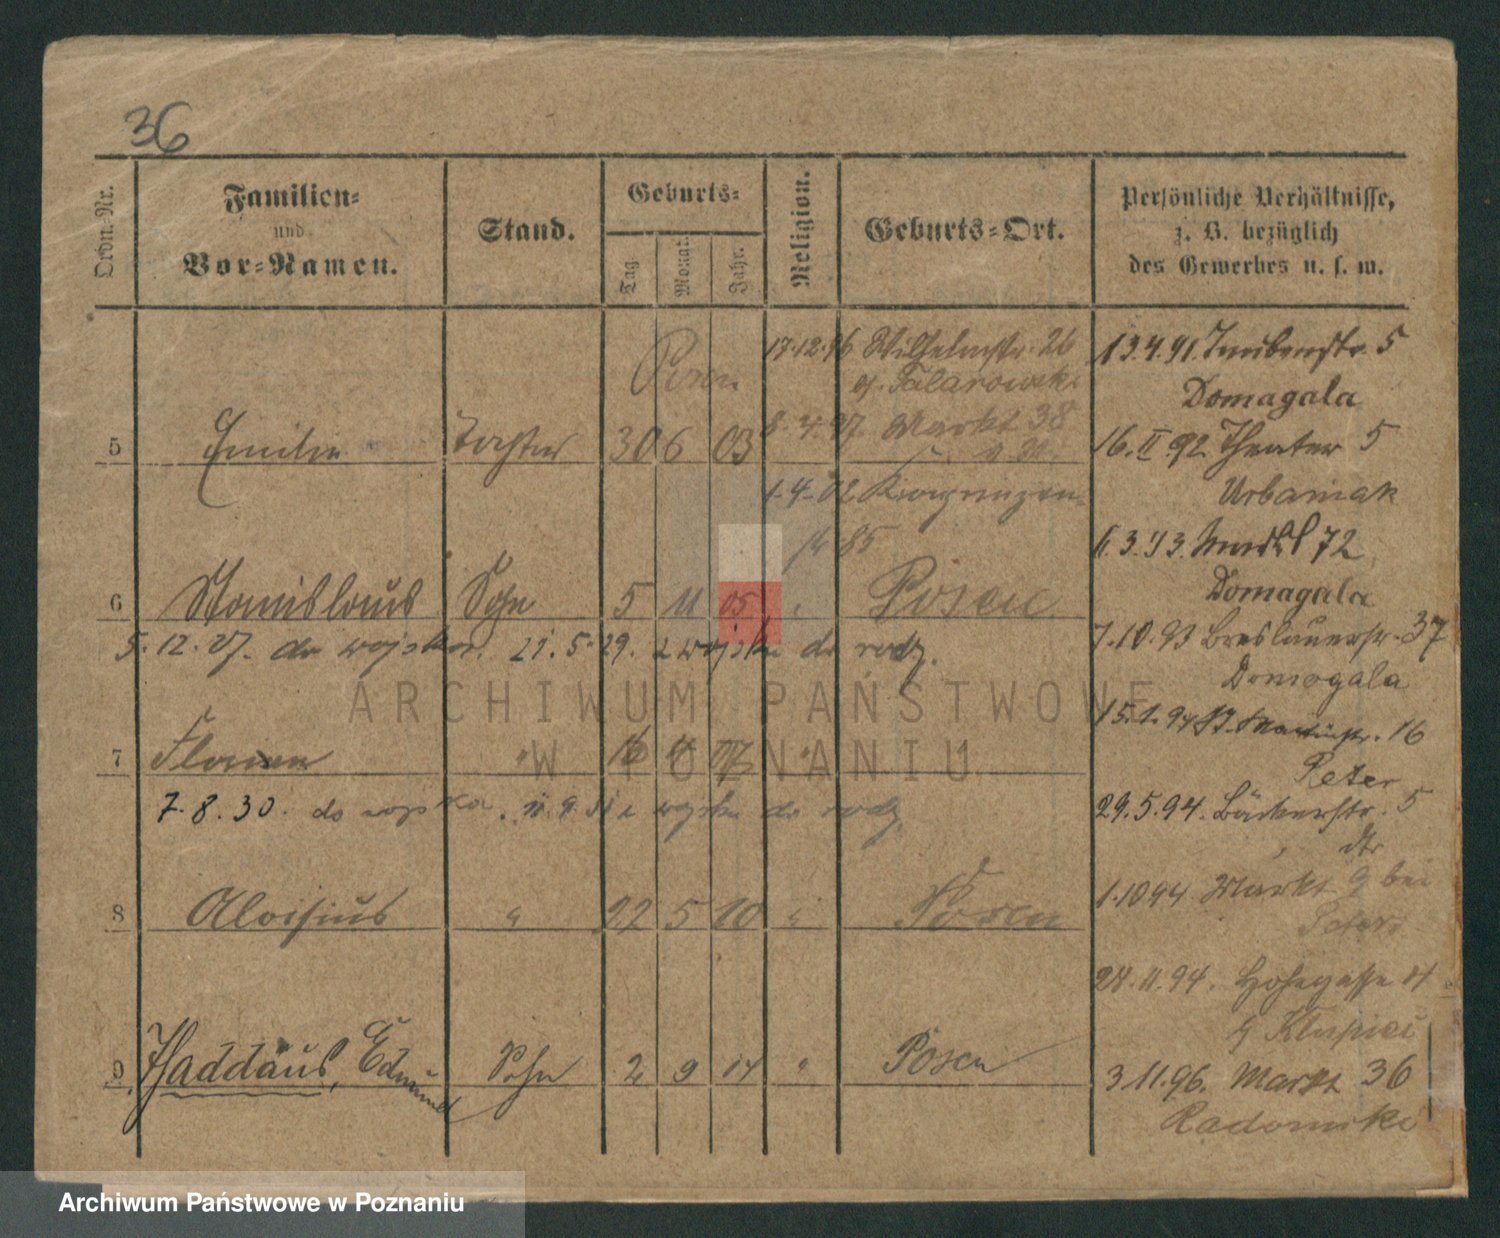 36
Ordn. Nr.
Familien- und Vor-Namen.
Stand.
Geburts-
Tag
Monat
Jahr.
Religion.
Geburts-Ort.
Persönliche Verhältnisse, z. B. bezüglich des Gewerbes u. s. w.
Posen 17.12.96 Wilhelmstr. 26 13.4.91
5
g. Talarowski
Domagala
5 Emilie Tochter 30 6 03
8.4.97. Markt 38
16.II.92 Theater 5
1.4.02
Urbaniak
85
6.3.93. 72
6 Stanislaus Sohn 5 11 05 Posen
Domagala
5.12.27. do wojska. 21.5.29. z wojska do rodz.
7.10.93 Breslauerstr. 37
Domogala
15.1.94 St. Martinstr. 16
7 Florian " 16 4 07 "
Peter
7.8.30. do wojska. z wojska do rodz.
29.5.94. Bäckerstr. 5
dto
1.10 94 Markt 9 bei
8 Aloisius " 22 5 10 " Posen
Peter
28.11.94. 4
9 Thaddäus, Edmund Sohn 2 9 14 " Posen
3 11.96. Markt 36
Radomski
ARCHIWUM PAŃSTWOWE
W POZNANIU
Archiwum Państwowe w Poznaniu